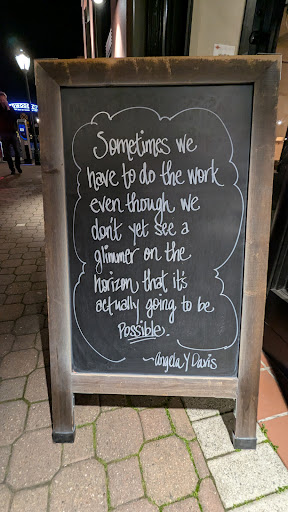 Sometimes we
have to do the work
even though we
don't yet see a
glimmer on the
horizon that it's
actually going to be
Possible.
~Angela Y Davis